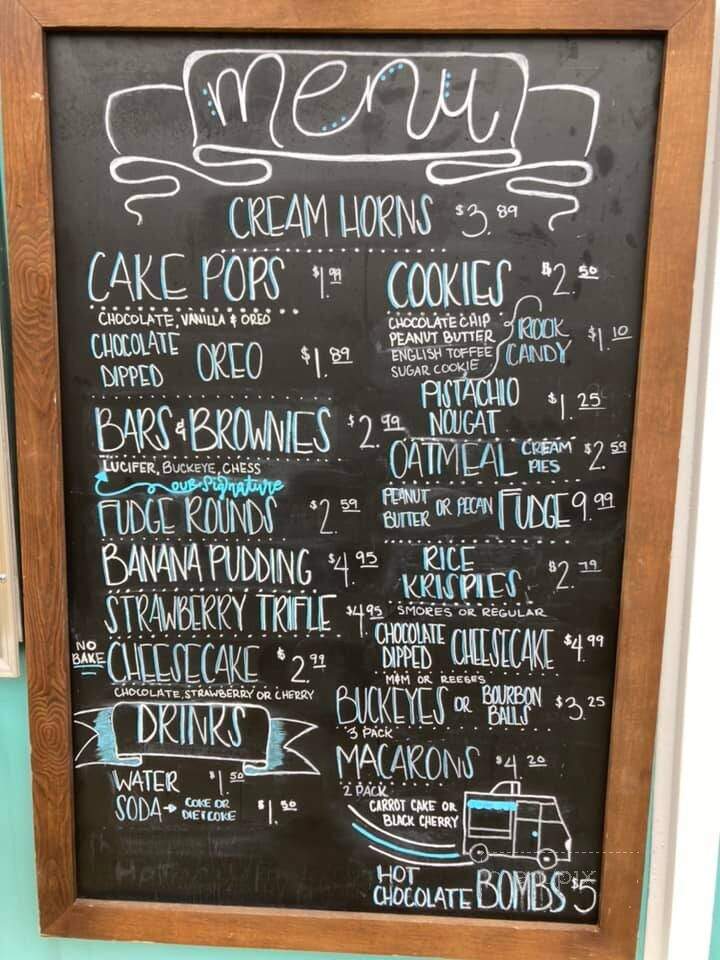 menu
CREAM HORNS $3.89
CAKE POPS $1.99
CHOCOLATE, VANILLA & OREO
CHOCOLATE DIPPED OREO $1.89
BARS & BROWNIES $2.99
LUCIFER, BUCKEYE, CHESS
our signature
FUDGE ROUNDS $2.59
BANANA PUDDING $4.95
STRAWBERRY TRIFLE $4.95
NO BAKE CHEESECAKE $2.99
CHOCOLATE, STRAWBERRY OR CHERRY
DRINKS
WATER $1.50
SODA → COKE OR DIET COKE $1.50
COOKIES $2.50
CHOCOLATE CHIP
PEANUT BUTTER
ENGLISH TOFFEE
SUGAR COOKIE
ROCK CANDY $1.10
PISTACHIO NOUGAT $1.25
OATMEAL CREAM PIES $2.59
PEANUT BUTTER OR PECAN FUDGE 9.99
RICE KRISPIES $2.79
SMORES OR REGULAR
CHOCOLATE DIPPED CHEESECAKE $4.99
M&M OR REESES
BUCKEYES OR BOURBON BALLS $3.25
3 PACK
MACARONS $4.20
2 PACK
CARROT CAKE OR
BLACK CHERRY
HOT CHOCOLATE BOMBS $5